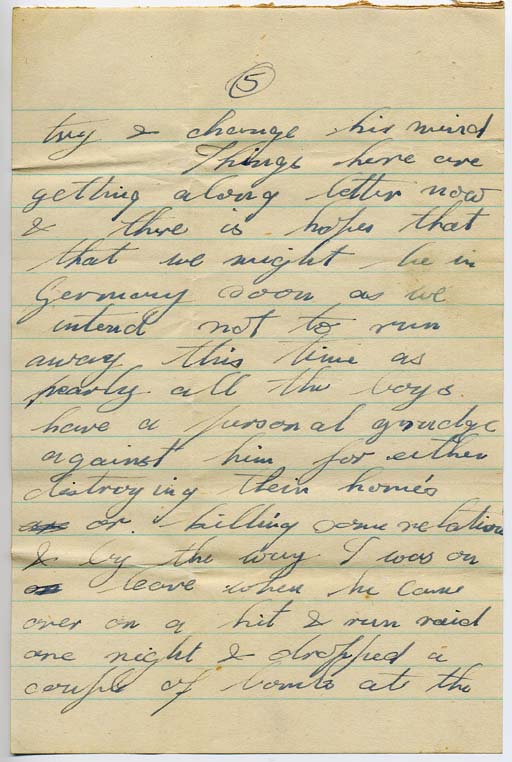 5
try & change his mind
Things here are
getting along better now
& there is hopes that
that we might be in
Germany soon as we
intend not to run
away this time as
nearly all the boys
have a personal grudge
against him for either
distroying their homes
or killing some relation
& by the way I was on
leave when he came
over on a hit & run raid
one night & dropped a
couple of bombs at the